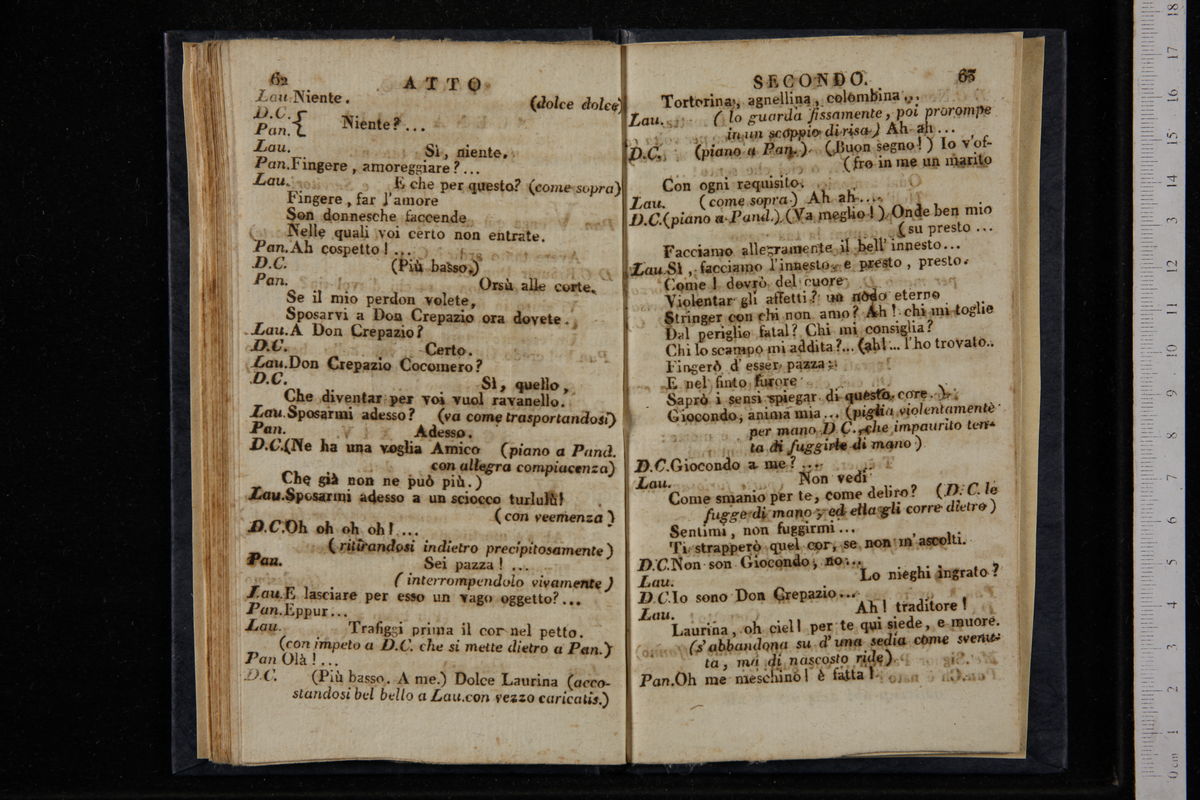 62 ATTO
Lau. Niente. (dolce dolce)
D.C.
Pan. Niente?...
Lau. Sì, niente.
Pan. Fingere, amoreggiare?...
Lau. E che per questo? (come sopra)
Fingere, far l'amore
Son donnesche faccende
Nelle quali voi certo non entrate.
Pan. Ah cospetto!...
D.C. (Più basso.)
Pan. Orsù alle corte.
Se il mio perdon volete,
Sposarvi a Don Crepazio ora dovete.
Lau. A Don Crepazio?
D.C. Certo.
Lau. Don Crepazio Cocomero?
D.C. Sì, quello,
Che diventar per voi vuol ravanello.
Lau. Sposarmi adesso? (va come trasportandosi)
Pan. Adesso.
D.C. (Ne ha una voglia Amico (piano a Pand.
con allegra compiacenza)
Che già non ne può più.)
Lau. Sposarmi adesso a un sciocco turlulù!
(con veemenza)
D.C. Oh oh oh oh!...
(ritirandosi indietro precipitosamente)
Pan. Sei pazza!...
(interrompendolo vivamente)
Lau. E lasciare per esso un vago oggetto?...
Pan. Eppur...
Lau. Trafiggi prima il cor nel petto.
(con impeto a D.C. che si mette dietro a Pan.)
Pan Olà!...
D.C. (Più basso. A me.) Dolce Laurina (acco-
standosi bel bello a Lau. con vezzo caricatis.)
SECONDO. 63
Tortorina, agnellina, colombina...
Lau. (lo guarda fissamente, poi prorompe
in un scoppio di risa) Ah ah...
D.C. (piano a Pan.) (Buon segno!) Io v'of-
(fro in me un marito
Con ogni requisito.
Lau. (come sopra) Ah ah...
D.C. (piano a Pand.) (Va meglio!) Onde ben mio
(su presto...
Facciamo allegramente il bell' innesto...
Lau Sì, facciamo l'innesto, e presto, presto.
Come! dovrò del cuore
Violentar gli affetti? un nodo eterno
Stringer con chi non amo? Ah! chi mi toglie
Dal periglio fatal? Chi mi consiglia?
Chi lo scampo mi addita?... (ah!... l'ho trovato..
Fingerò d'esser pazza:
E nel finto furore
Saprò i sensi spiegar di questo core.)
Giocondo, anima mia... (piglia violentamente
per mano D C., che impaurito ten-
ta di fuggirle di mano)
D.C. Giocondo a me?...
Lau. Non vedi
Come smanio per te, come deliro? (D. C. le
fugge di mano, ed ella gli corre dietro)
Sentimi, non fuggirmi...
Ti strapperò quel cor, se non m'ascolti.
D.C. Non son Giocondo, no...
Lau. Lo nieghi ingrato?
D.C. Io sono Don Crepazio...
Lau. Ah! traditore!
Laurina, oh ciel! per te qui siede, e muore.
(s'abbandona su d'una sedia come svenu-
ta, ma di nascosto ride)
Pan. Oh me meschino! è fatta!